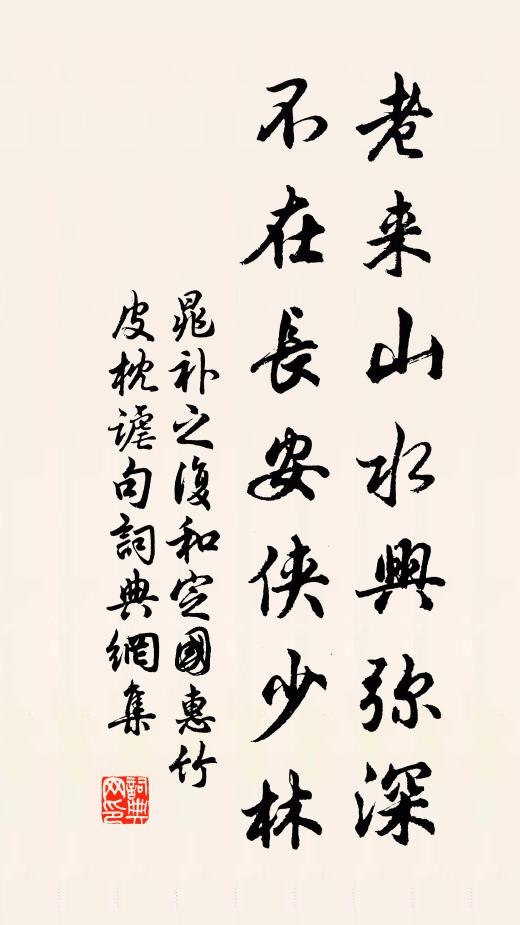 老来山水興弥深
不在長安俠少林
晁补之復和定國惠竹
皮枕謔句詞典網集
詞典网印